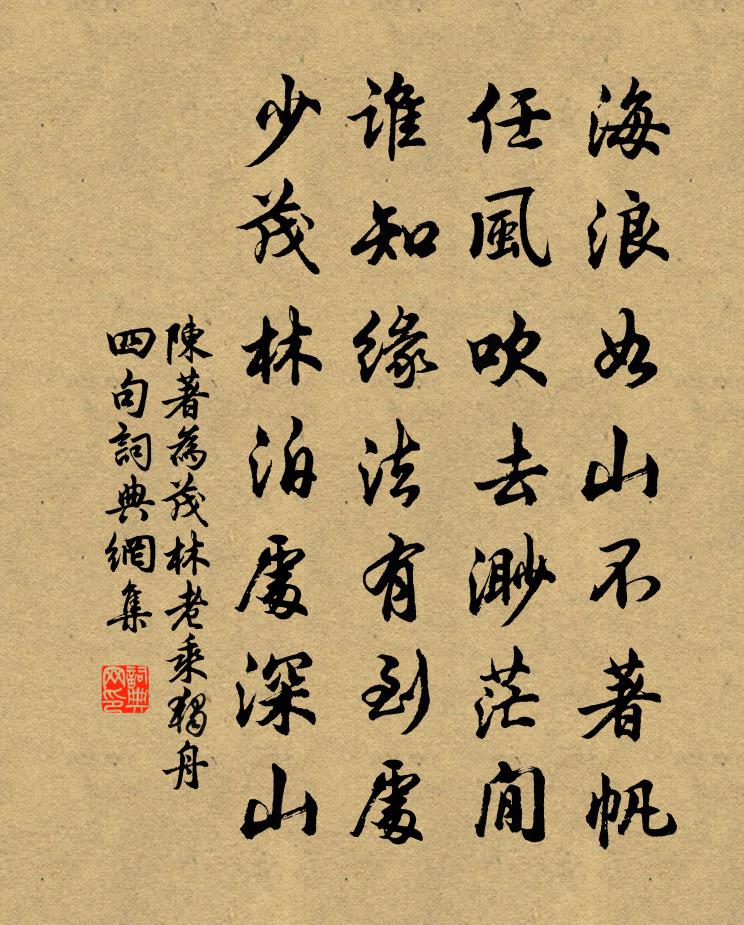 海浪如山不著帆
任風吹去渺茫間
誰知緣法有到處
少茂林泊處深山
陳著為茂林老乘獨舟
四句詞典網集
詞典网印